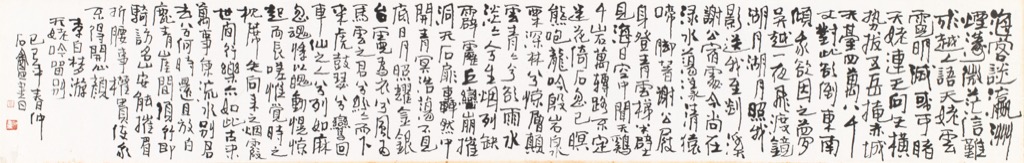 海客談瀛洲
煙濤微茫信難
求越人語天姥雲
霓明滅或可睹
天姥連天向天橫
勢拔五岳掩赤城
天臺四萬八千
丈對此欲倒東南
傾我欲因之夢
吳越一夜飛渡鏡
湖月湖月照我
影送我至剡溪
謝公宿處今尚在
淥水蕩漾清猿
啼腳著謝公屐
身登青雲梯半壁
見海日空中聞天雞
千岩萬轉路不定
迷花倚石忽已暝
熊咆龍吟殷岩泉
栗深林兮驚層巔
雲青青兮欲雨水
淡淡兮生烟列缺
霹靂丘巒崩摧
洞天石扉轟然中
開青冥浩蕩不見
底日月照耀金銀
臺霓為衣兮風為
馬雲之君兮紛紛而下
來虎鼓瑟兮鸞回
車仙之人兮列如麻
忽魂悸以魄動怳驚
起而長嗟惟覺時之
枕席失向來之烟霞
世間行樂亦如此古來
萬事東流水別君
去兮何時還且放白
鹿青崖間須行即
騎訪名山安能摧眉
折腰事權貴使我
不得開心顏
李白夢游
天姥吟留別